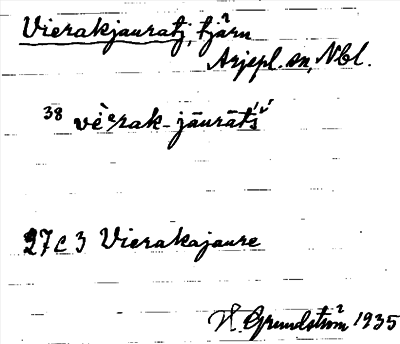 Vierakjauratj, tjärn
Arjepl. sn, Nbl.
38 vè̀ᵉrak-jāurāt́ś
27 C 3 Vierakajaure
H. Grundström 1935